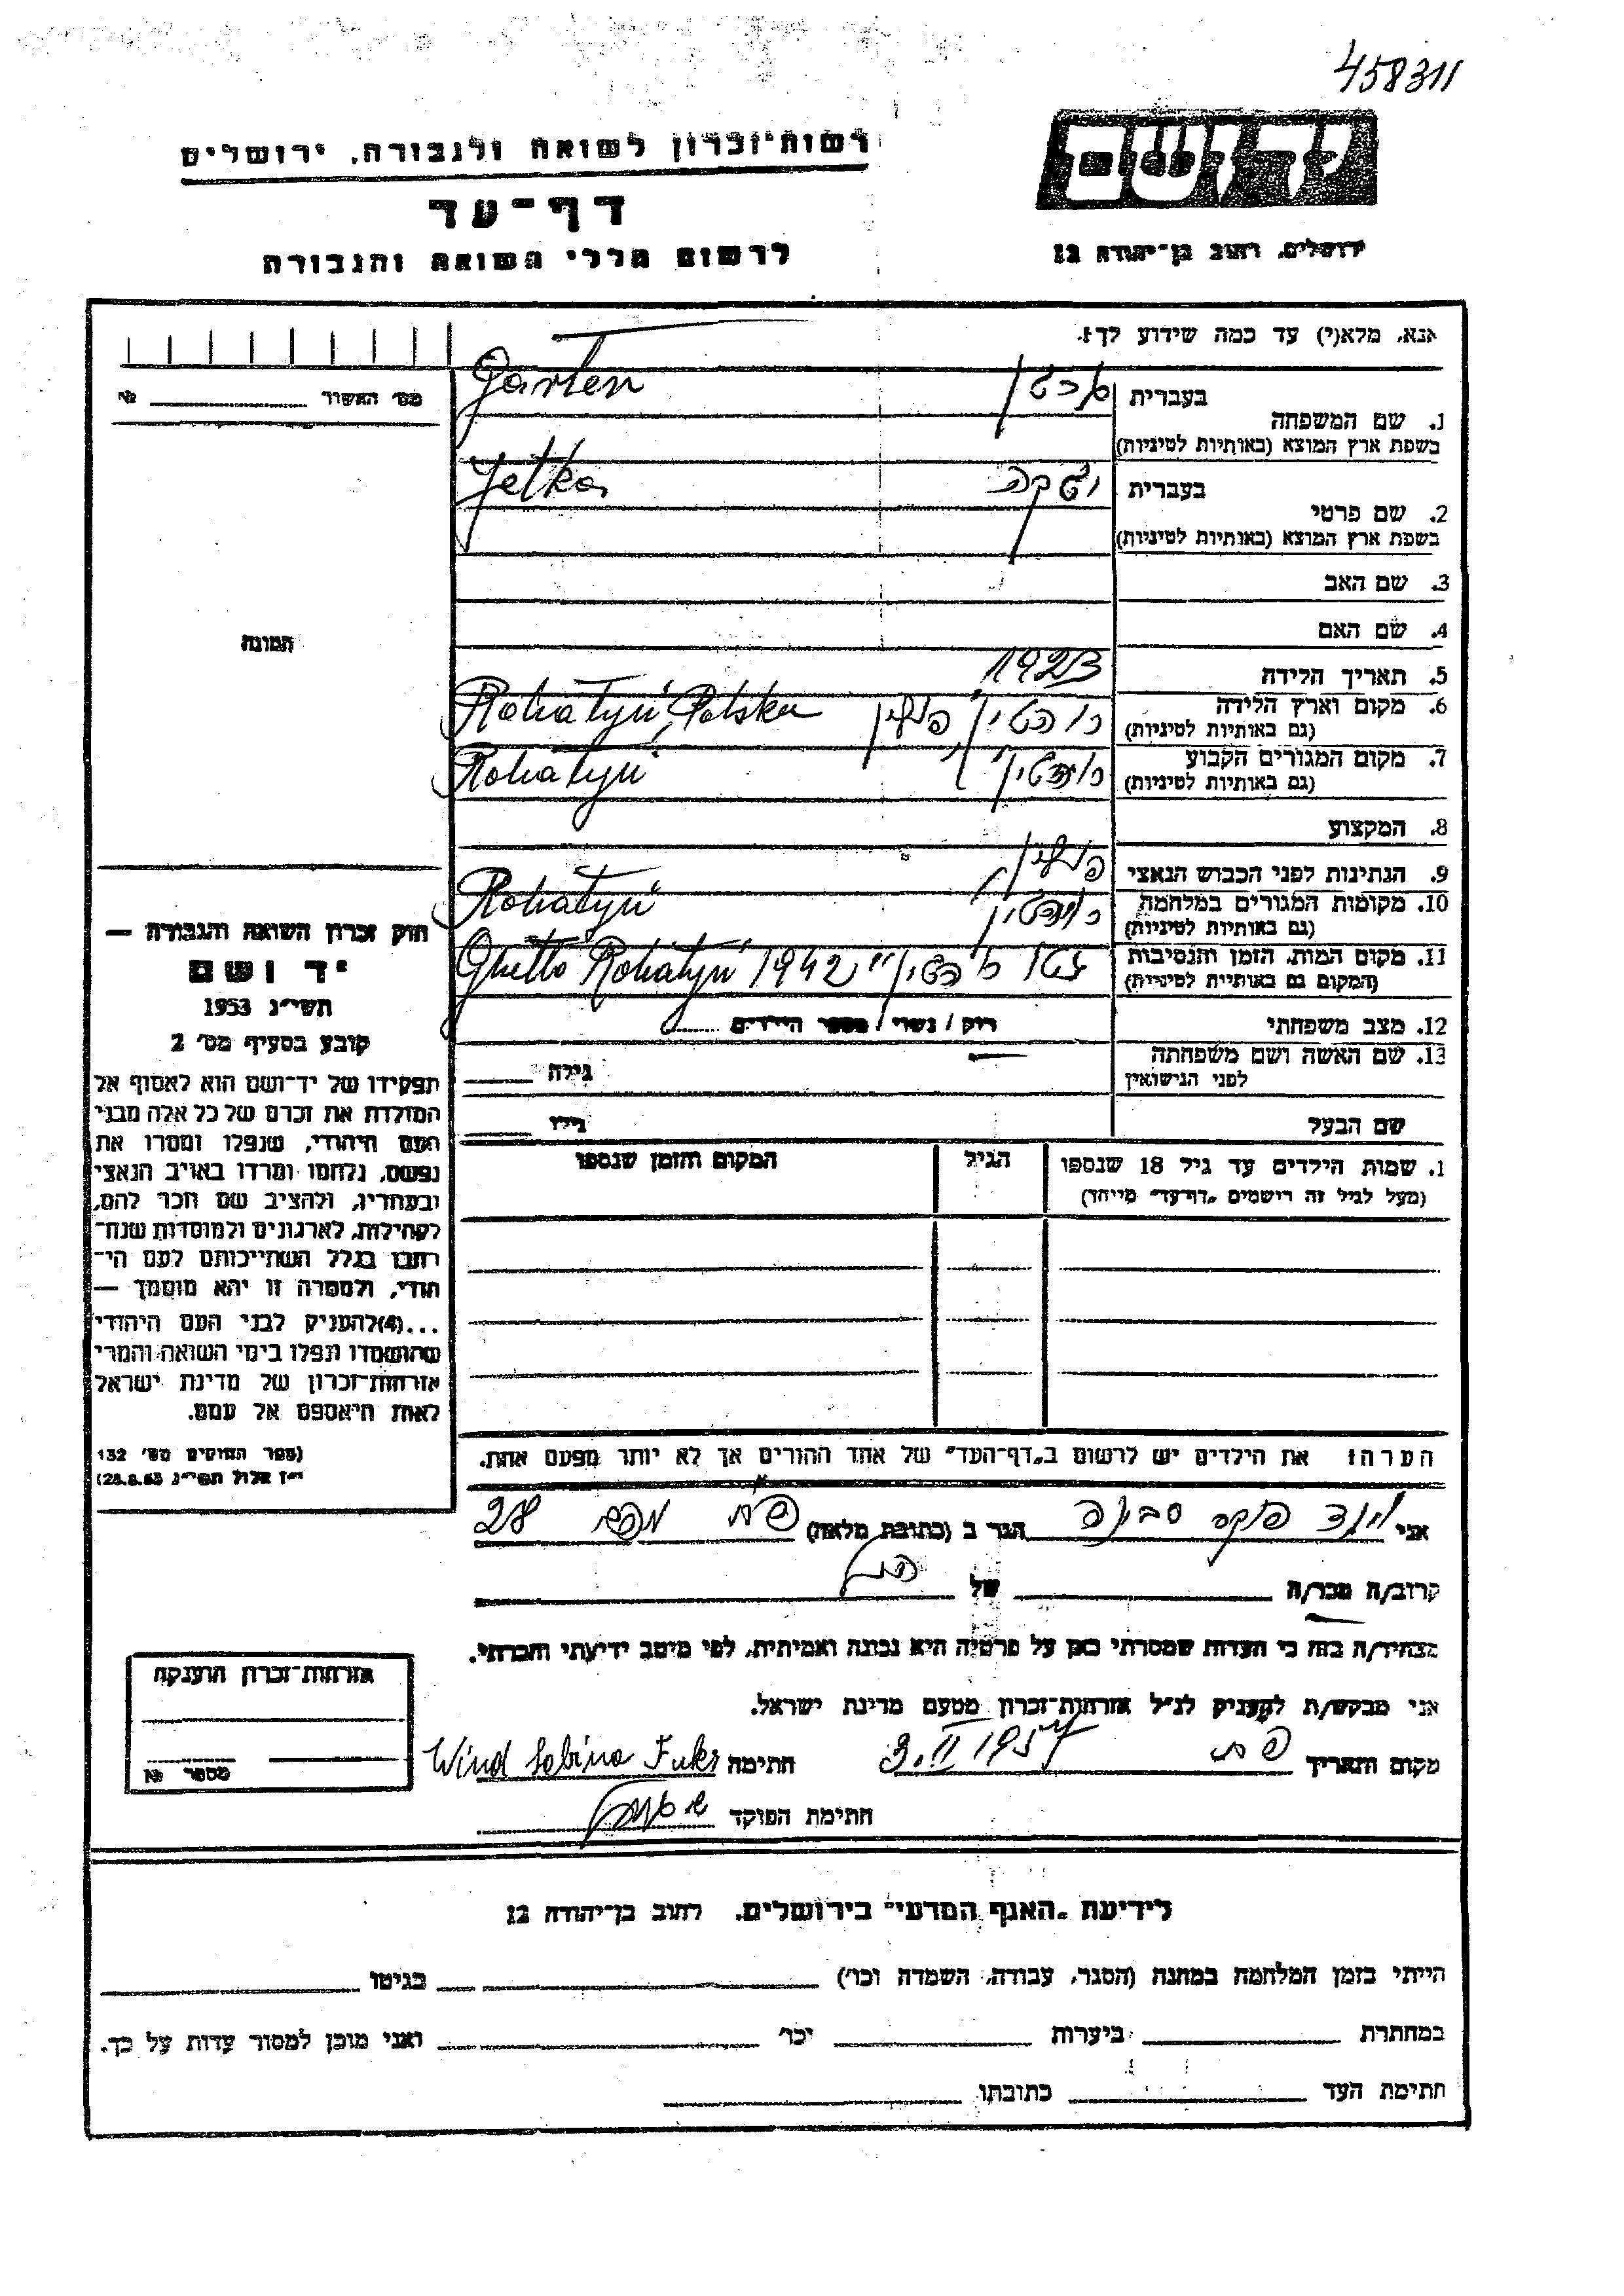 458311
רשות־זכרון לשואה ולגבורה, ירושלים
דף־עד
לרשום חללי השואה והגבורה
יד ושם
ירושלים, רחוב בן־יהודה 12
אנא, מלא(י) עד כמה שידוע לך:
מס׳ האשור № ________
1. שם המשפחה בעברית גרטן
בשפת ארץ המוצא (באותיות לטיניות) Garten
2. שם פרטי בעברית יטקה
בשפת ארץ המוצא (באותיות לטיניות) Jetka
3. שם האב
4. שם האם
5. תאריך הלידה 1923
6. מקום וארץ הלידה רוהטין, פולין
(גם באותיות לטיניות) Rohatyń, Polska
7. מקום המגורים הקבוע רוהטין
(גם באותיות לטיניות) Rohatyń
8. המקצוע
9. הנתינות לפני הכבוש הנאצי פולין
10. מקומות המגורים במלחמה רוהטין
(גם באותיות לטיניות) Rohatyń
11. מקום המות, הזמן והנסיבות גטו רוהטין
(המקום גם באותיות לטיניות) Ghetto Rohatyń 1942
12. מצב משפחתי רוק / נשוי / מספר הילדים
13. שם האשה ושם משפחתה גילה
לפני הנישואין
שם הבעל גילו
1. שמות הילדים עד גיל 18 שנספו הגיל המקום והזמן שנספו
(מעל לגיל זה רושמים „דף־עד" מיוחד)
הערה: את הילדים יש לרשום ב„דף־העד" של אחד ההורים אך לא יותר מפעם אחת.
תמונה
חוק זכרון השואה והגבורה —
יד ושם
תשי״ג 1953
קובע בסעיף מס׳ 2
תפקידו של יד־ושם הוא לאסוף אל
המולדת את זכרם של כל אלה מבני
העם היהודי, שנפלו ומסרו את
נפשם, נלחמו ומרדו באויב הנאצי
ובעוזריו, ולהציב שם וזכר להם,
לקהילות, לארגונים ולמוסדות שנח־
רבו בגלל השתייכותם לעם הי־
הודי, ולמטרה זו יהא מוסמך —
...(4) להעניק לבני העם היהודי
שהושמדו ונפלו בימי השואה והמרי
אזרחות־זכרון של מדינת ישראל
לאות היאספם אל עמם.
(ספר החוקים מס׳ 132
י״ז אלול תשי״ג 28.8.53)
אני וינד פוקס סבינה הגר ב (כתובת מלאה) 28
קרוב/ה מכר/ה ________ של ________
מצהיר/ה בזה כי העדות שמסרתי כאן על פרטיה היא נכונה ואמיתית, לפי מיטב ידיעתי והכרתי.
אני מבקש/ת להעניק לנ״ל אזרחות־זכרון מטעם מדינת ישראל.
מקום ותאריך 3.II 1957 חתימה Wind Sabina Fuks
חתימת הפוקד
אזרחות־זכרון הוענקה
מספר №
לידיעת „האגף המדעי" בירושלים, רחוב בן־יהודה 12
הייתי בזמן המלחמה במחנה (הסגר, עבודה, השמדה וכו׳) ________ בגיטו ________
במחתרת ________ ביערות ________ וכו׳ ________ ואני מוכן למסור עדות על כך.
חתימת העד ________ כתובתו ________